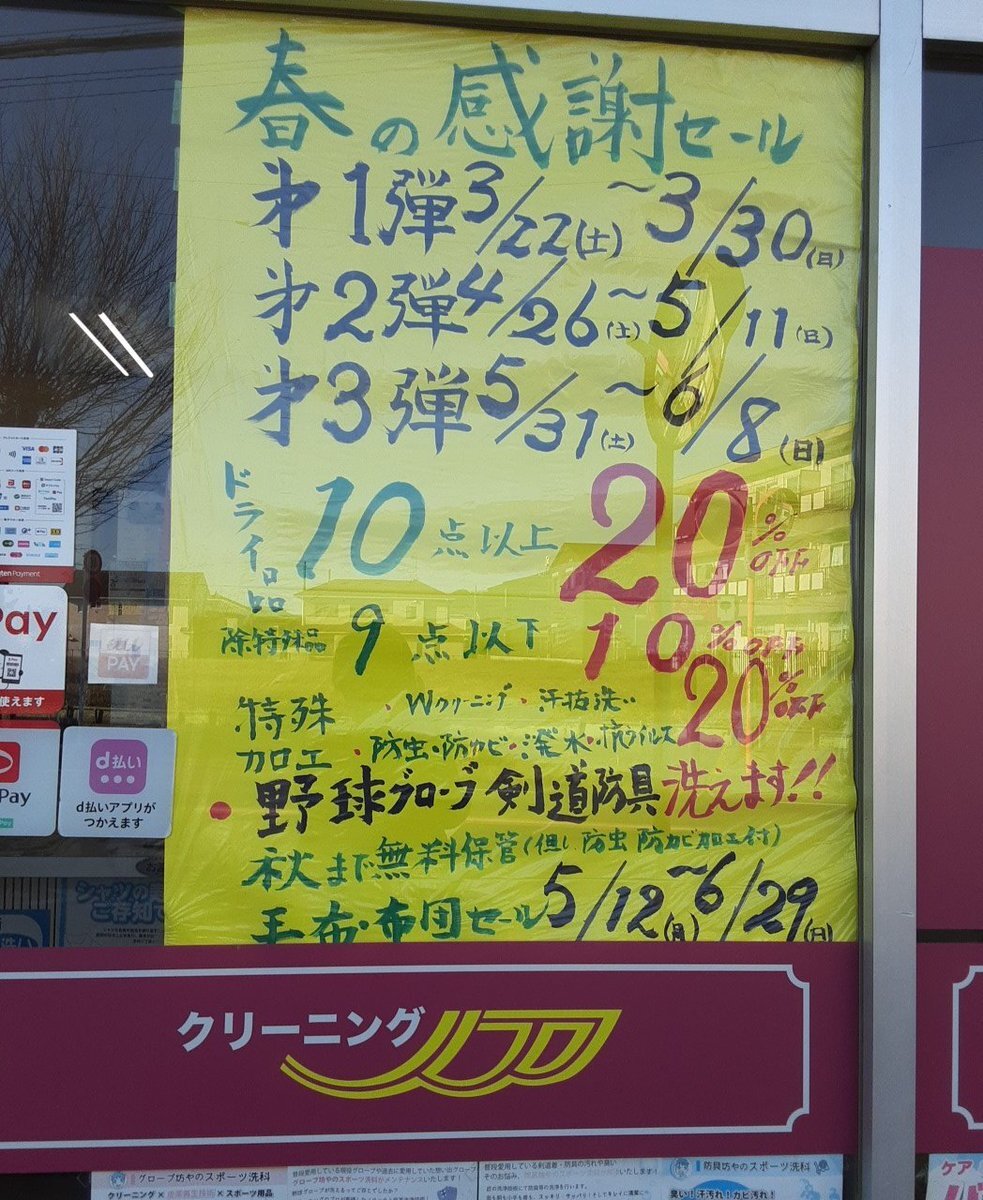 春の感謝セール
才1弾3/22(土)〜3/30(日)
才2弾4/26(土)〜5/11(日)
才3弾5/31(土)〜6/8(日)
ドライ品
10点以上 20%OFF
除特殊品 9点以下 10%OFF
特殊加工 ・Wクリーニング・汗抜洗い
・防虫・防カビ・溌水・抗ウイルス 20%OFF
・野球グローブ剣道防具洗えます!!
秋まで無料保管(但し防虫防カビ加工付)
毛布・布団セール5/12(月)〜6/29(日)
VISA
Pay
使えます
PAY
Pay
d払い
d払いアプリが
つかえます
シャツの
ご存知で
クリーニング ノフロ
グローブ坊やのスポーツ洗科
クリーニング×皮革再生技術×スポーツ用品
防具坊やのスポーツ洗科
臭い!汗汚れ!カビ汚れ!
ケア